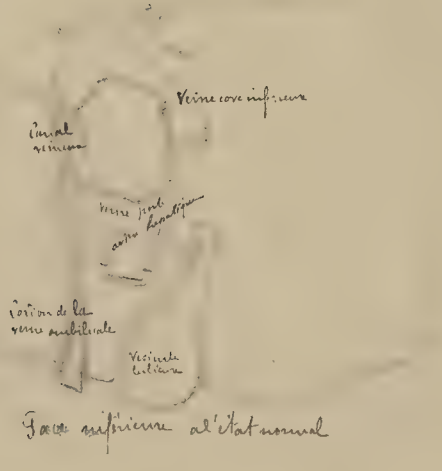 Veine cave inférieure
Canal
veineux
veine porte
artère hépatique
Portion de la
veine ombilicale
Vesicule
biliaire
Face inférieure a l'état normal